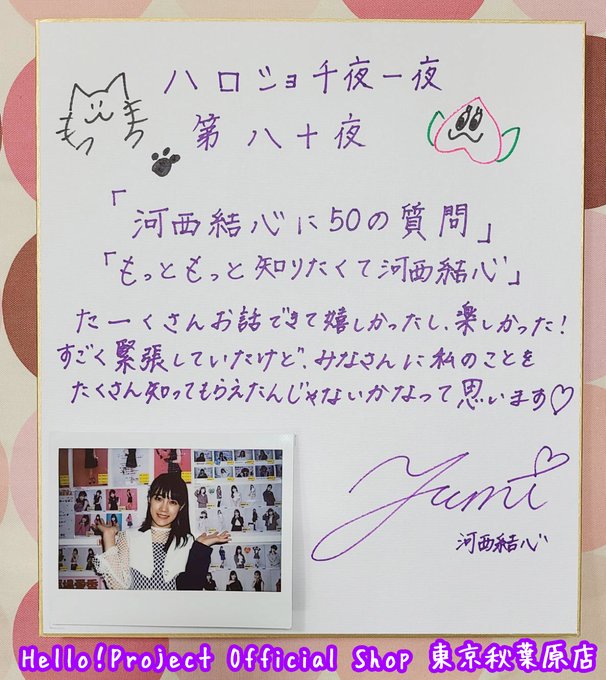 ハロショ千夜一夜
第八十夜
もっ
まろ
「河西結心に50の質問」
「もっともっと知りたくて河西結心」
たーくさんお話できて嬉しかったし、楽しかった!
すごく緊張していたけど、みなさんに私のことを
たくさん知ってもらえたんじゃないかなって思います♡
Yumi♡
河西結心
Hello!Project Official Shop 東京秋葉原店